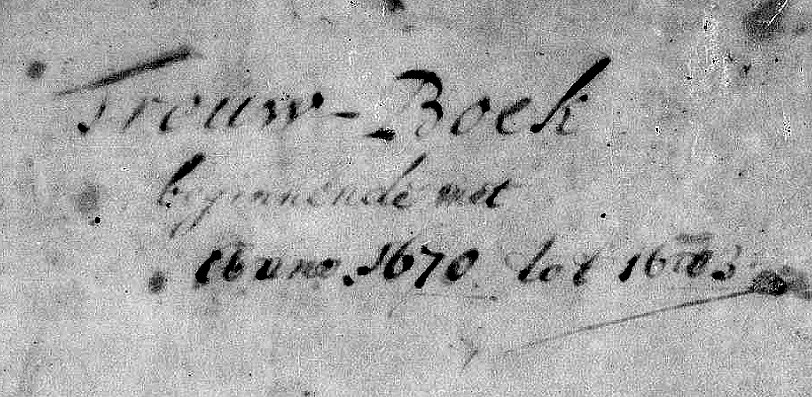 Trouw-Boek
beginnende met
Anno 1670 tot